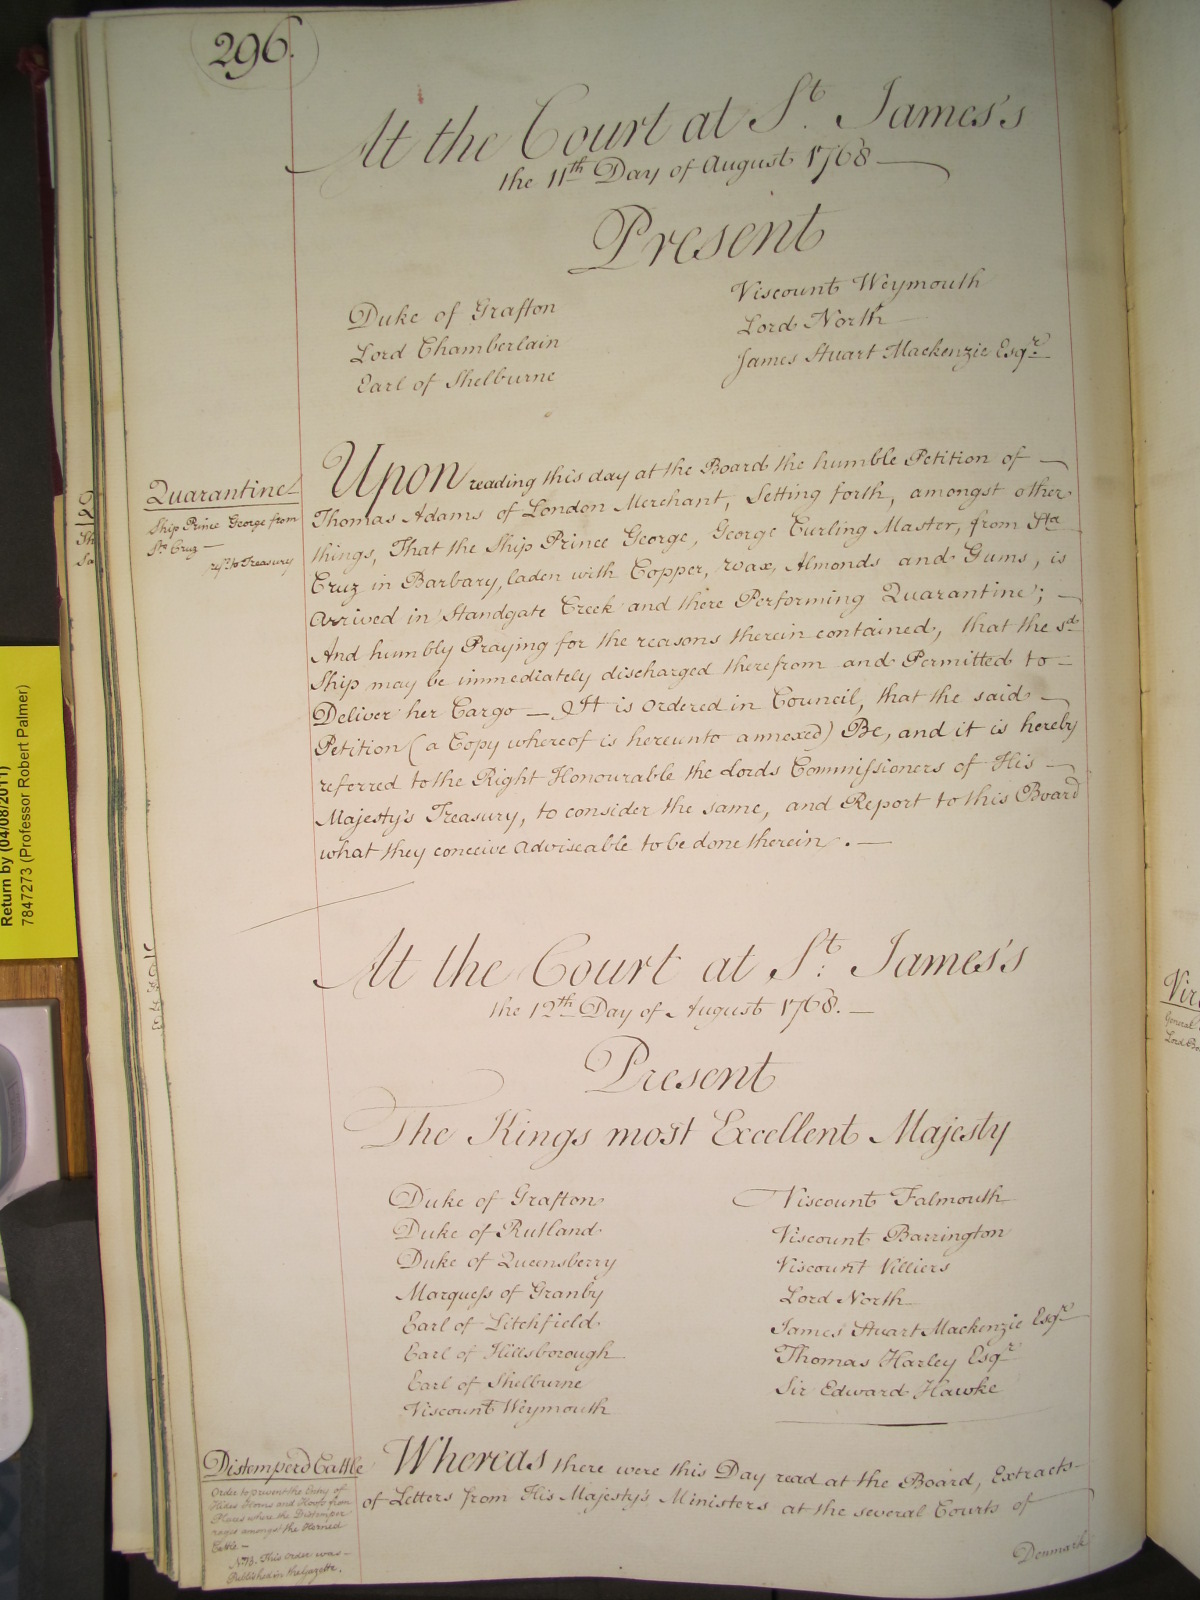 296.
At the Court at St. James's
the 11th Day of August 1768
Present
Duke of Grafton
Lord Chamberlain
Earl of Shelburne
Viscount Weymouth
Lord North
James Stuart Mackenzie Esqr.
Quarantine
Ship Prince George from
Sta Cruz
refd. to Treasury
Upon reading this day at the Board the humble Petition of
Thomas Adams of London Merchant, Setting forth, amongst other
things, That the Ship Prince George, George Curling Master, from Sta
Cruz in Barbary, laden with Copper, Wax, Almonds and Gums, is
arrived in Standgate Creek and there Performing Quarantine;
And humbly Praying for the reasons therein contained, that the sd
Ship may be immediately discharged therefrom and Permitted to
Deliver her Cargo — It is ordered in Council, that the said
Petition (a Copy whereof is hereunto annexed) Be, and it is hereby
referred to the Right Honourable the Lords Commissioners of His
Majesty's Treasury, to consider the same, and Report to this Board
what they conceive adviseable to be done therein. —
At the Court at St. James's
the 12th Day of August 1768. —
Present
The Kings most Excellent Majesty
Duke of Grafton
Duke of Rutland
Duke of Queensberry
Marquess of Granby
Earl of Litchfield
Earl of Hillsborough
Earl of Shelburne
Viscount Weymouth
Viscount Falmouth
Viscount Barrington
Viscount Villiers
Lord North
James Stuart Mackenzie Esqr
Thomas Harley Esqr
Sir Edward Hawke
Distemperd Cattle
Order to prevent the Entry of
Hides Horns and Hoofs from
Places where the Distemper
rages amongst the Horned
Cattle —
NB. This Order was
Published in the Gazette.
Whereas there were this Day read at the Board, Extracts
of Letters from His Majesty's Ministers at the several Courts of
Denmark
Return by (04/08/2011)
7847273 (Professor Robert Palmer)
General